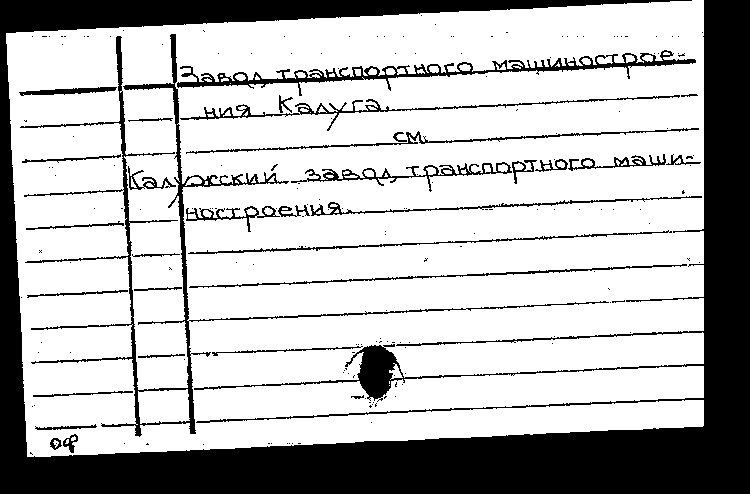 Завод транспортного машинострое-
ния. Калуга.
см.
Калужский завод транспортного маши-
ностроения.
оф